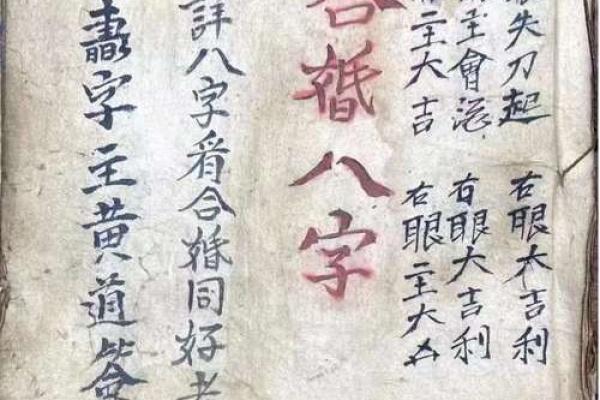 失刀起
主會
二主大吉
右眼大吉利
右眼大吉利
右眼二主大凶
合婚八字
詳八字看合婚同好
字主黃道